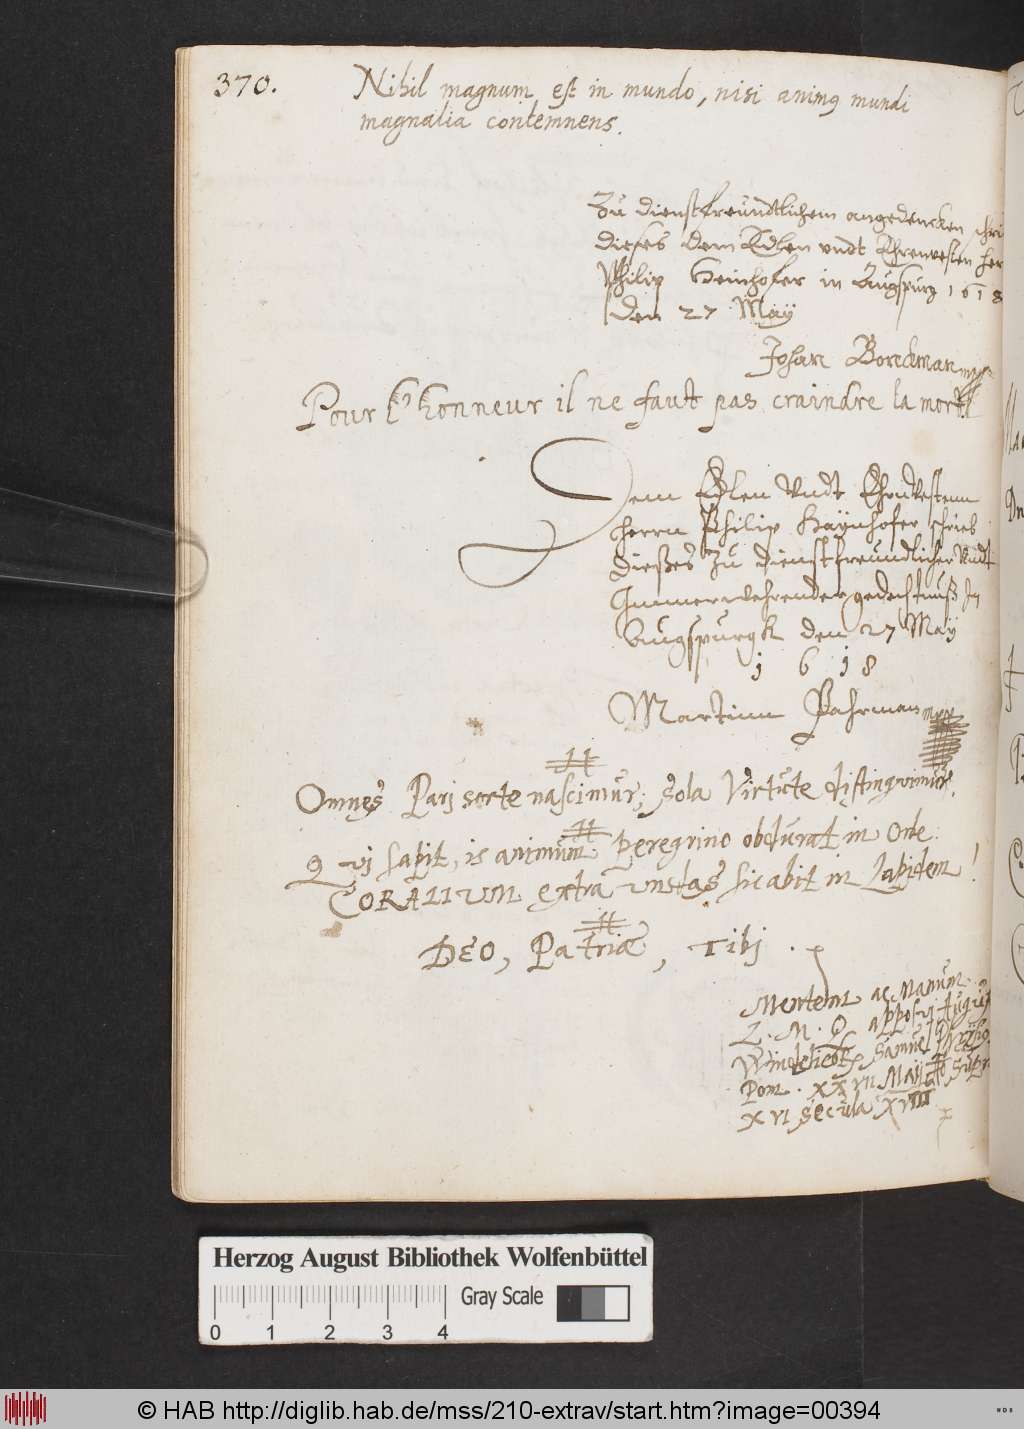 370.
Nihil magnum est in mundo, nisi animq mundi
magnalia contemnens.
Zu dienstfreundtlichem angedencken schri
dieses dem Edlen undt Ehrenvesten her
Philip Heinhofer in Augspurg 1618
den 27 May
Johan Borckman mpp
Pour l'honneur il ne faut pas craindre la mort
Dem Edlen Undt Ehrnvestenn
herrn Philip Haÿnhofer schrieb
dießes Zu dienstfreundlicher Undt
Immerwehrender gedechtnuß In
Augspurgk den 27 Maÿ
1618
Martinn Pahrman mpp
Omnes Parj sorte nascimur; sola Virtute distinguimur.
Qui sapit, is animum peregrino obdurat in Orbe:
CORALIUM extra undas sic abit in Lapidem!
DEO, Patriæ, Tibj.
Mentem ac Manum
L. M. Q. apposui Augus
Vindelicor Samuel
Pom. XXVII Maij Supr
XVI Secula XVIII
Herzog August Bibliothek Wolfenbüttel
0 1 2 3 4 Gray Scale
© HAB http://diglib.hab.de/mss/210-extrav/start.htm?image=00394
HAB